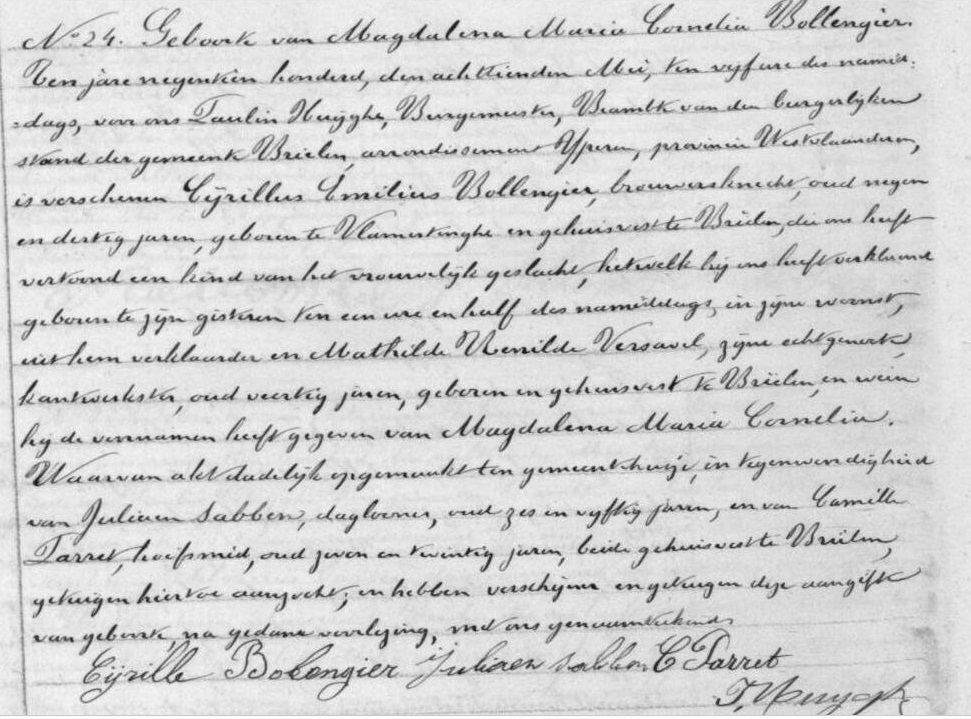 No 24. Geboorte van Magdalena Maria Cornelia Bollengier.
Ten jare negentien honderd, den achttienden Mei, ten vyf ure des namid:
=dags, voor ons Paulin Huÿghe, Burgemeester, Beambte van den burgerlyken
stand der gemeente Brielen, arrondissement Yperen, provincie Westvlaanderen,
is verschenen Cÿrillus Emilius Bollengier, brouwersknecht, oud negen
en dertig jaren, geboren te Vlamertinghe en gehuisvest te Brielen, die ons heeft
vertoond een kind van het vrouwelyk geslacht, hetwelk hy ons heeft verklaard
geboren te zyn gisteren ten een ure en half des namiddags, in zyne woonst,
uit hem verklaarder en Mathilde Renilde Versavel, zyne echtgenote,
kantwerkster, oud veertig jaren, geboren en gehuisvest te Brielen, en wien
hy de voornamen heeft gegeven van Magdalena Maria Cornelia.
Waarvan akt dadelyk opgemaakt ten gemeentehuize, in tegenwoordigheid
van Juliaen Sabben, daglooner, oud zes en vyftig jaren, en van Camille
Parret, hoefsmid, oud zeven en twintig jaren, beide gehuisvest te Brielen,
getuigen hiertoe aangezocht; en hebben verschyner en getuigen deze aangifte
van geboorte, na gedane voorlezing, met ons genaamteekend.
Cÿrille Bolengier Juliaen Sabben C Parret